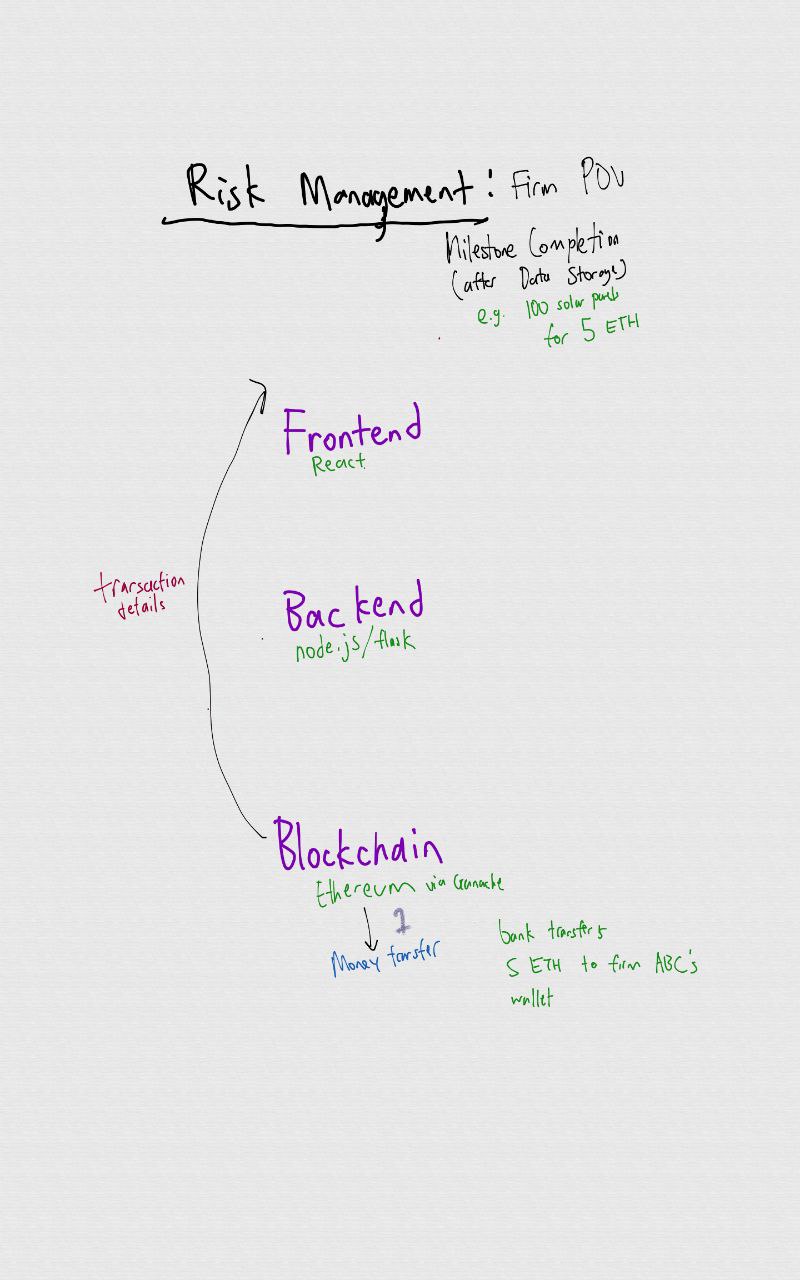 Risk Management: Firm POV
Milestone Completion
(after Data Storage)
e.g. 100 solar panels
for 5 ETH
Frontend
React
transaction
details
Backend
node.js/flask
Blockchain
Ethereum via Ganache
1
Money transfer
bank transfers
5 ETH to firm ABC's
wallet